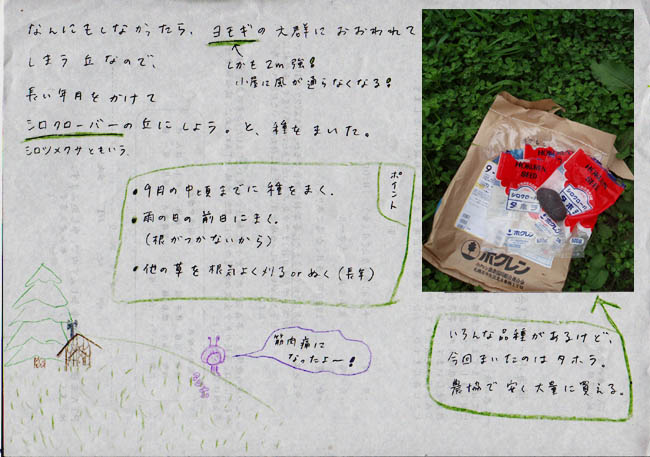 なんにもしなかったら、ヨモギの大群におおわれて
しまう丘なので、
しかも2m強!
小屋に風が通らなくなる!
長い年月をかけて
シロクローバーの丘にしよう。と、種をまいた。
シロツメクサともいう。
ポイント
・9月の中頃までに種をまく。
・雨の日の前日にまく。
(根がつかないから)
・他の草を根気よく刈るorぬく(長年)
筋肉痛に
なったよー!
HOKUREN
SEED
シロクローバ
タホラ
ホクレン
ホクレン
いろんな品種があるけど、
今回まいたのはタホラ。
農協で安く大量に買える。